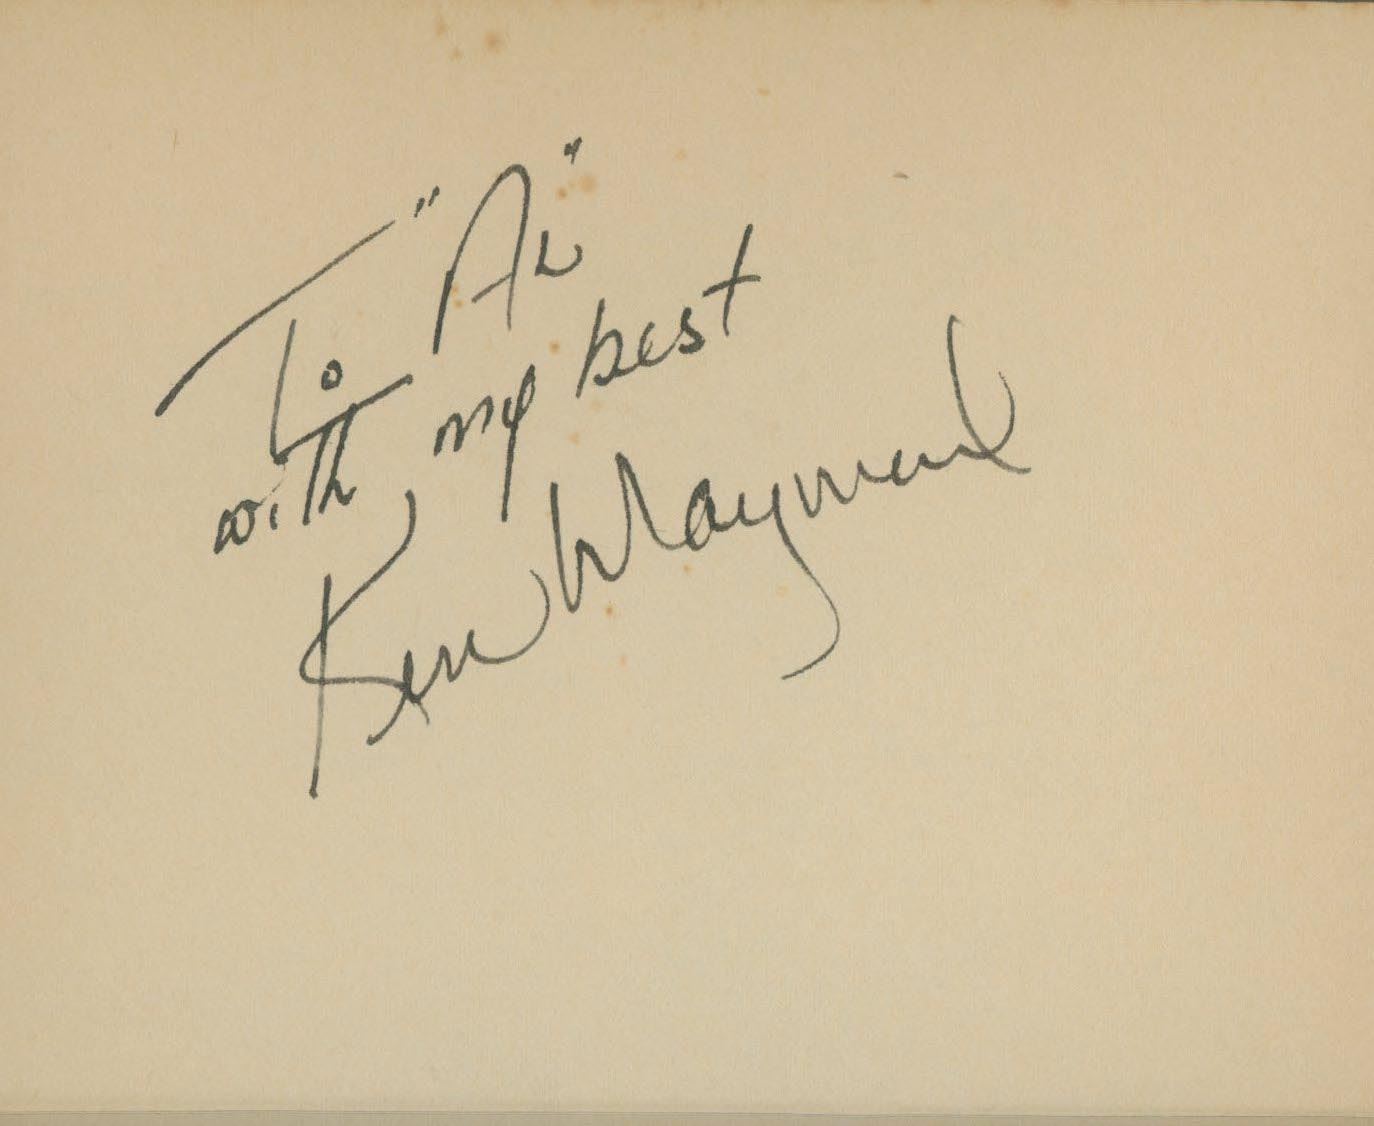 To "AL"
with my best
Ken Maynard